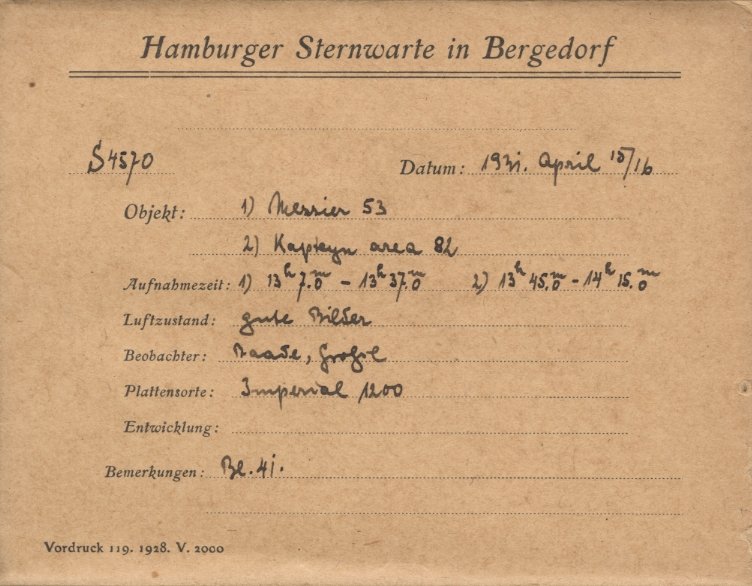 Hamburger Sternwarte in Bergedorf
S4570 Datum: 1931. April 15/16
Objekt: 1) Messier 53
2) Kapteyn area 82
Aufnahmezeit: 1) 13h 7.m0 - 13h 37.m0 2) 13h 45.m0 - 14h 15.m0
Luftzustand: gute Bilder
Beobachter: Baade,
Plattensorte: Imperial 1200
Entwicklung:
Bemerkungen: Bl. 41.
Vordruck 119. 1928. V. 2000